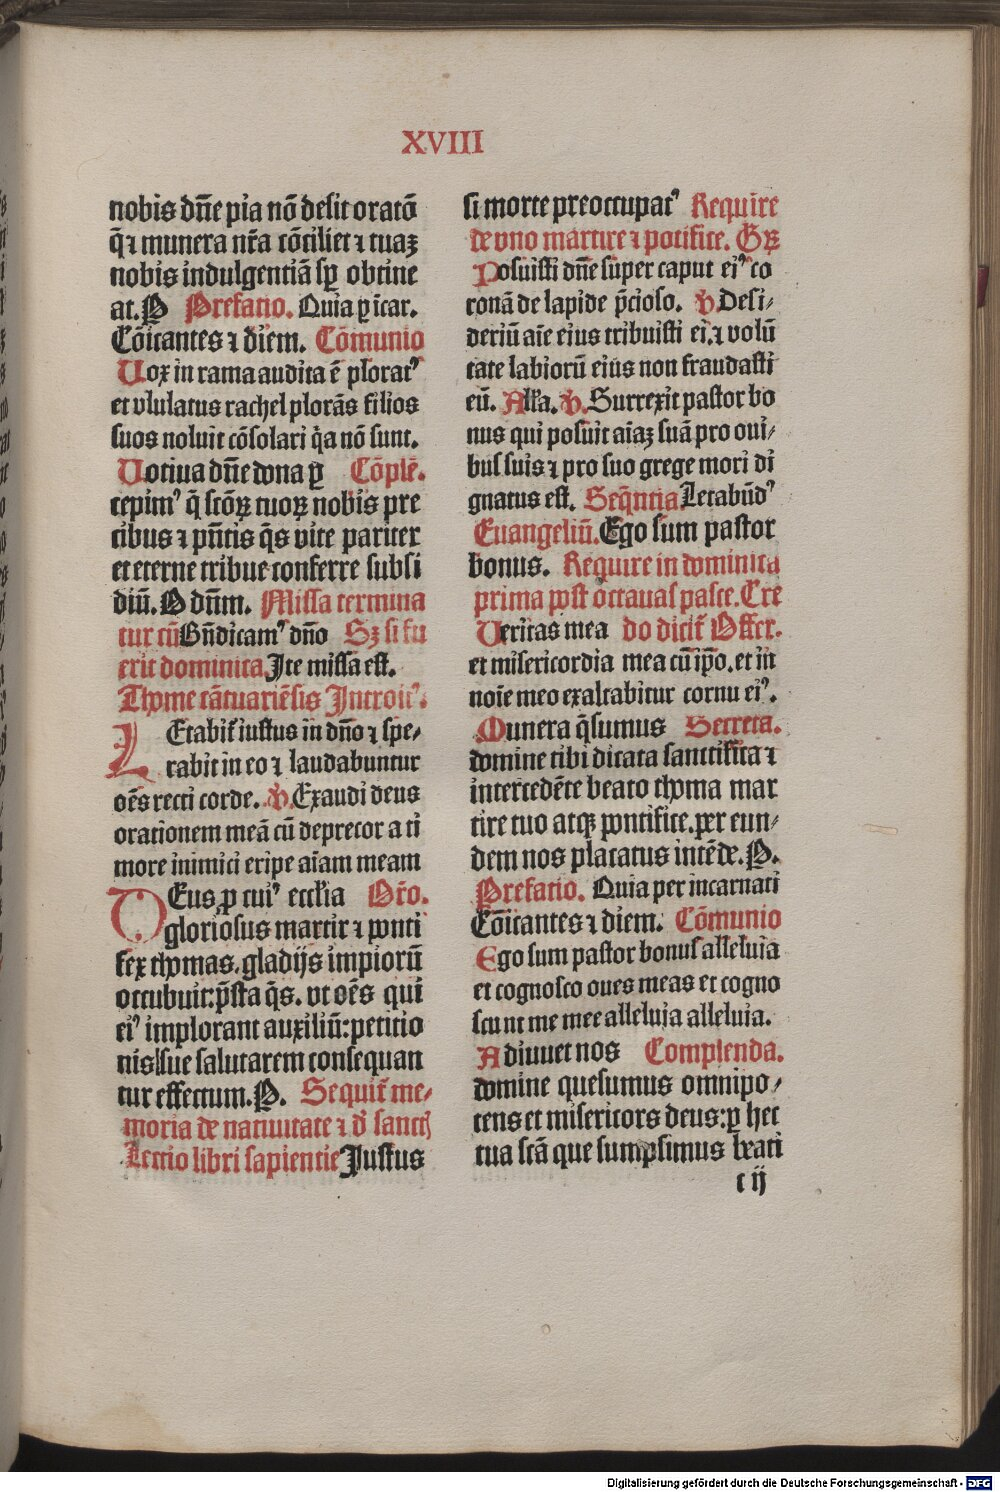 XVIII
nobis dn̄e pia nō desit oratō
q̄ ⁊ munera nr̄a cōciliet ⁊ tuaꝫ
nobis indulgentiā sꝑ obtine
at. P Prefatio. Quia ꝑ icar.
Cōicantes ⁊ diem. Cōmunio
Vox in rama audita ē ploratꝰ
et vlulatus rachel plorās filios
suos noluit cōsolari q̄a nō sunt.
Votiua dn̄e dona ꝑ Cōple.
cepimꝰ q̄ scōꝝ tuoꝝ nobis pre
cibus ⁊ pn̄tis q̄s vite pariter
et eterne tribue conferre subsi
diū. P dn̄m. Missa termina
tur cū Bn̄dicamꝰ dn̄o Sꝫ si fu
erit dominica. Ite missa est.
Thome cātuariēsis Introitꝰ.
LEtabit̄ iustus in dn̄o ⁊ spe⸗
rabit in eo ⁊ laudabuntur
oēs recti corde. V. Exaudi deus
orationem meā cū deprecor a ti
more inimici eripe aīam meam
DEus ꝓ cuiꝰ eccl̄ia Or̄o.
gloriosus martir ⁊ ponti
fex thomas. gladijs impiorū
occubuit: p̄sta q̄s. vt oēs qui
eiꝰ implorant auxiliū: petitio
nis sue salutarem consequan
tur effectum. P. Sequit̄ me⸗
moria de natiuitate ⁊ d̄ sanct̄
Lectio libri sapientie Justus
si morte preoccupatꝰ Require
de vno martire ⁊ pōtifice. Gꝝ
Posuisti dn̄e super caput eiꝰ co
ronā de lapide p̄cioso. V. Desi⸗
deriū aīe eius tribuisti ei. ⁊ volū
tate labiorū eius non fraudasti
eū. Alla. V. Surrexit pastor bo
nus qui posuit aīaꝫ suā pro oui⸗
bus suis ⁊ pro suo grege mori di
gnatus est. Seq̄ntia Letabūdꝰ
Euangeliū. Ego sum pastor
bonus. Require in dominica
prima post octauas pasce. Cre
Veritas mea do dicit̄ Offer.
et misericordia mea cū ip̄o. et in
noīe meo exaltabitur cornu eiꝰ.
Munera q̄sumus Secreta.
domine tibi dicata sanctifica ⁊
intercedēte beato thoma mar
tire tuo atqꝫ pontifice. per eun⸗
dem nos placatus intēde. P.
Prefatio. Quia per incarnati
Cōicantes ⁊ diem. Cōmunio
Ego sum pastor bonus alleluia
et cognosco oues meas et cogno
scunt me mee alleluia alleluia.
Adiuuet nos Complenda.
domine quesumus omnipo⸗
tens et misericors deus: ꝑ hec
tua scā que sumpsimus beati
c ij
Digitalisierung gefördert durch die Deutsche Forschungsgemeinschaft - DFG